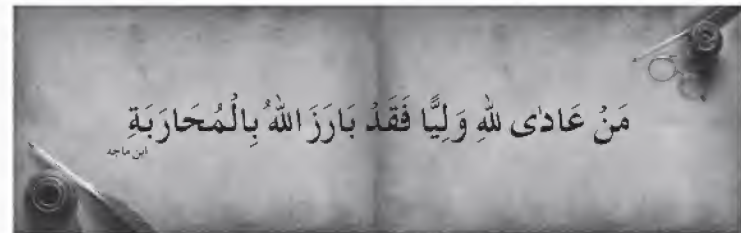 مَنْ عَادٰى لِلّٰهِ وَلِيًّا فَقَدْ بَارَزَ اللهُ بِالْمُحَارَبَةِ
ابن ماجه